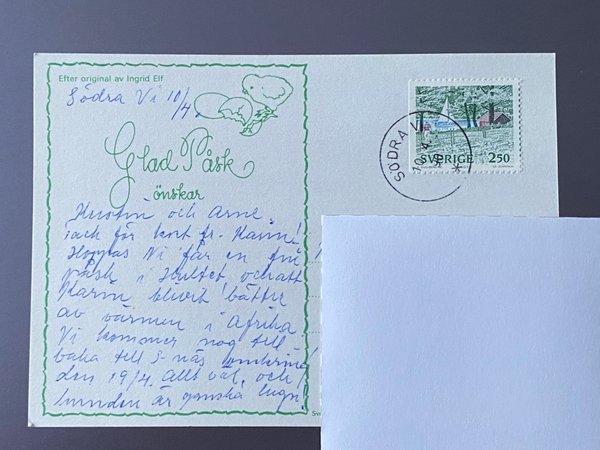 Efter original av Ingrid Elf
Södra Vi 10/4.
Glad Påsk
önskar
och Arne.
Tack för kort fr. Kann!
Hoppas Ni får en fin
påsk i Hultet och att
Karin blivit bättre
av värmen i Afrika
Vi kommer nog till
baka till S-näs omkring
den 19/4. Allt väl, och
hunden är ganska lugn!
SÖDRA VI
10.4.90
SVERIGE 250
Sv